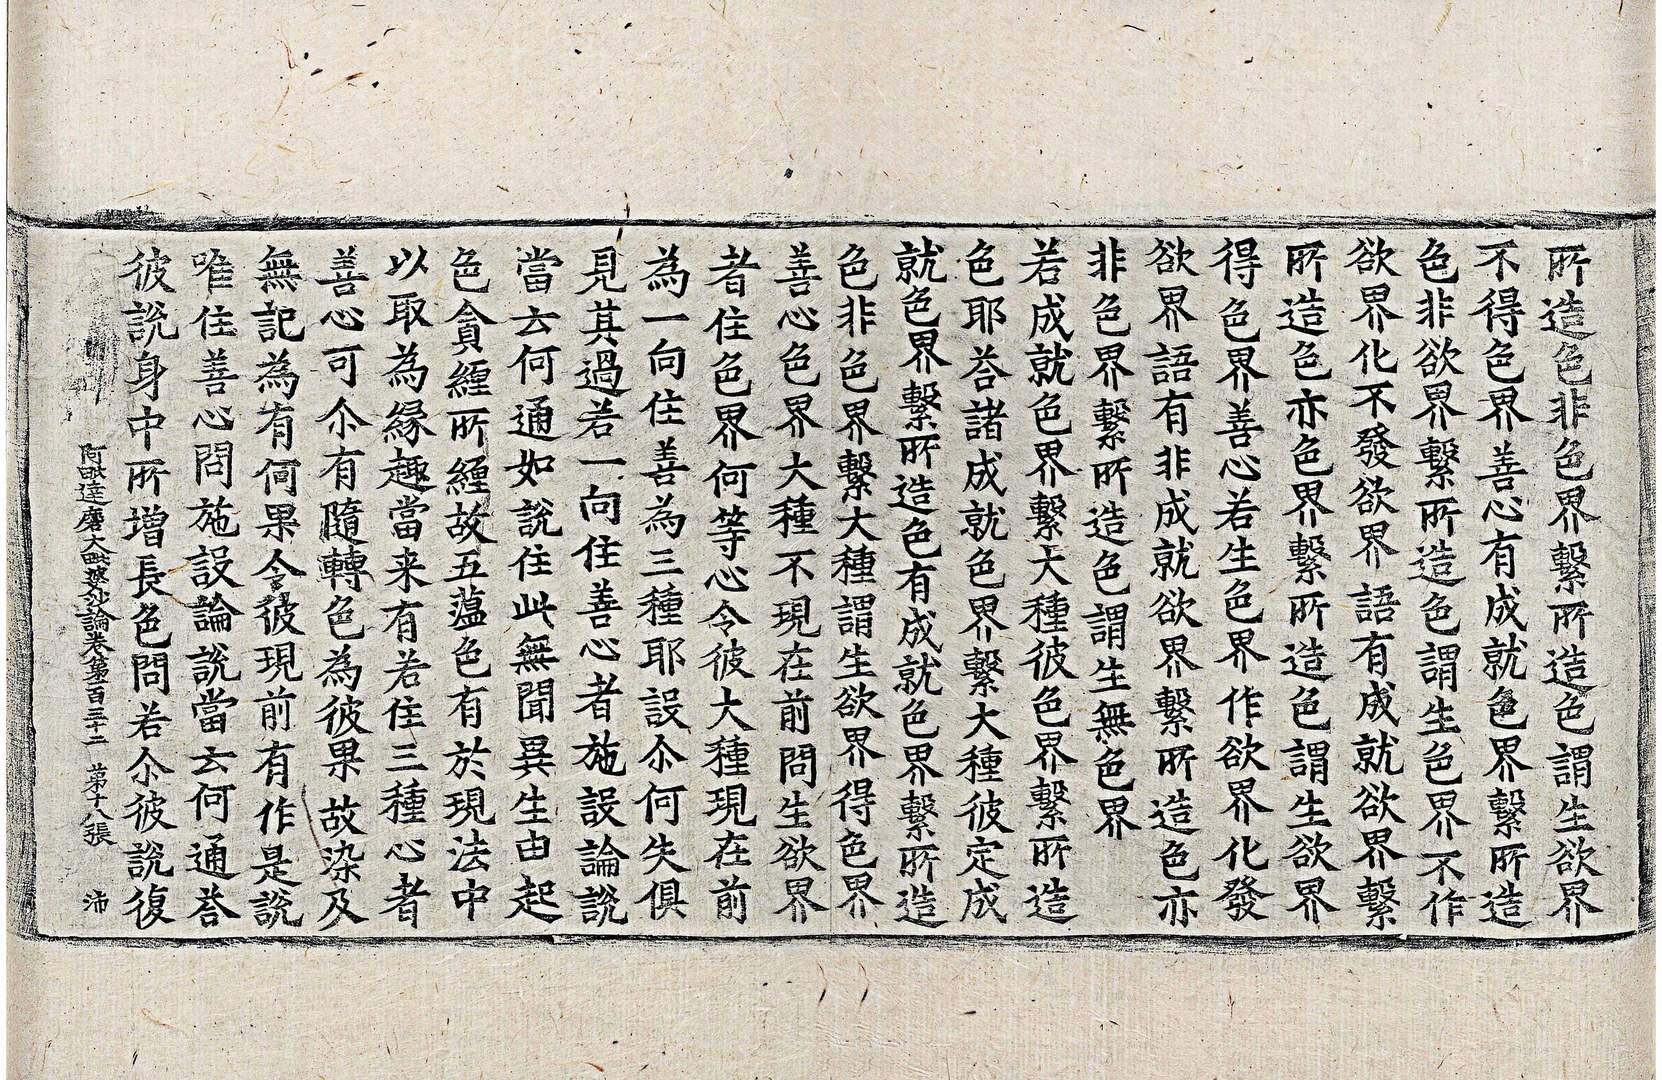 所造色非色界繫所造色謂生欲界
不得色界善心有成就色界繫所造
色非欲界繫所造色謂生色界不作
欲界化不發欲界語有成就欲界繫
所造色亦色界繫所造色謂生欲界
得色界善心若生色界作欲界化發
欲界語有非成就欲界繫所造色亦
非色界繫所造色謂生無色界
若成就色界繫大種彼色界繫所造
色耶荅諸成就色界繫大種彼定成
就色界繫所造色有成就色界繫所造
色非色界繫大種謂生欲界得色界
善心色界大種不現在前問生欲界
者住色界何等心令彼大種現在前
為一向住善為三種耶設尒何失俱
見其過若一向住善心者施設論說
當云何通如說住此無聞異生由起
色貪纏所纏故五蘊色有於現法中
以取為緣趣當来有若住三種心者
善心可尒有隨轉色為彼果故染及
無記為有何果令彼現前有作是說
唯住善心問施設論說當云何通荅
彼說身中所增長色問若尒彼說復
阿毗達磨大毗婆沙論卷第一百三十二 第十八張 沛